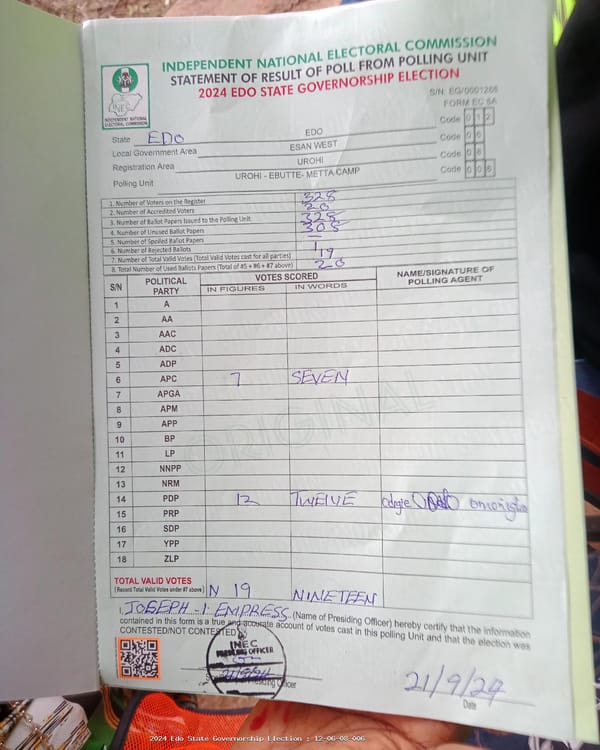 INDEPENDENT NATIONAL ELECTORAL COMMISSION
STATEMENT OF RESULT OF POLL FROM POLLING UNIT
2024 EDO STATE GOVERNORSHIP ELECTION
INEC
INDEPENDENT NATIONAL
ELECTORAL COMMISSION
S/N: EG/0001266
FORM EC 8A
State EDO EDO Code 012
Local Government Area ESAN WEST Code 06
Registration Area UROHI Code 08
Polling Unit UROHI - EBUTTE- METTA CAMP Code 006
1. Number of Voters on the Register 328
2. Number of Accredited Voters 20
3. Number of Ballot Papers Issued to the Polling Unit 328
4. Number of Unused Ballot Papers 308
5. Number of Spoiled Ballot Papers –
6. Number of Rejected Ballots 1
7. Number of Total Valid Votes (Total Valid Votes cast for all parties) 19
8. Total Number of Used Ballots Papers (Total of #5 + #6 + #7 above) 20
S/N POLITICAL PARTY VOTES SCORED NAME/SIGNATURE OF POLLING AGENT
IN FIGURES IN WORDS
1 A
2 AA
3 AAC
4 ADC
5 ADP
6 APC 7 SEVEN
7 APGA
8 APM
9 APP
10 BP
11 LP
12 NNPP
13 NRM
14 PDP 12 TWELVE
15 PRP
16 SDP
17 YPP
18 ZLP
ORIGINAL
TOTAL VALID VOTES N 19 NINETEEN
(Record Total Valid Votes under #7 above)
I, JOSEPH - I. EMPRESS (Name of Presiding Officer) hereby certify that the information
contained in this form is a true and accurate account of votes cast in this polling Unit and that the election was
CONTESTED/NOT CONTESTED
INEC
PRESIDING OFFICER
21/9/24
Presiding Officer
21/9/24
Date
2024 Edo State Governorship Election : 12-06-08-006